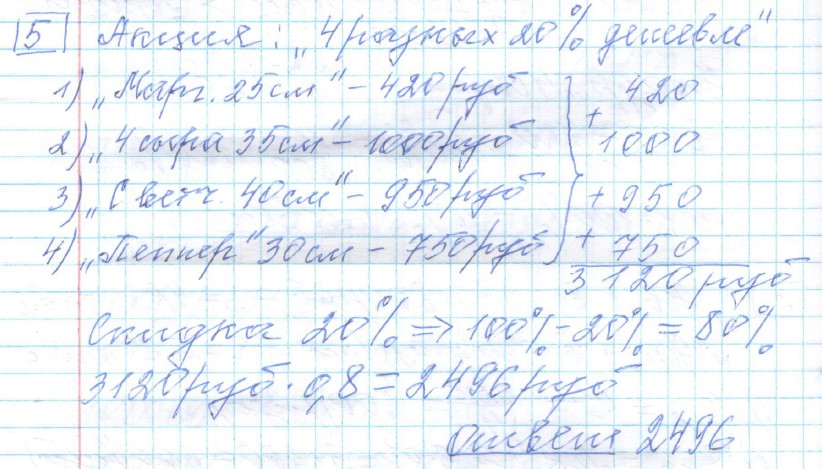 5 Акция: „4 разных 20% дешевле"
1) „Марг. 25см" – 420 руб 420
2) „4 сыра 35см" – 1000 руб + 1000
3) „С ветч. 40см" – 950 руб + 950
4) „Пеппер" 30см – 750 руб + 750
3120 руб
Скидка 20% ⇒ 100% - 20% = 80%
3120 руб · 0,8 = 2496 руб
Ответ 2496